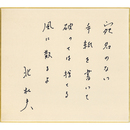 宛名のない
手紙を書いて
破っては捨てる
風に散るよ